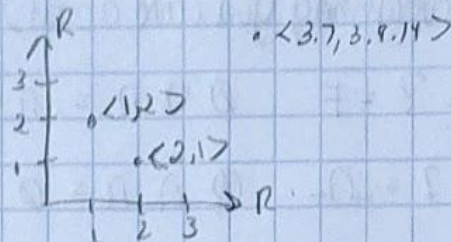 R
<3.7, 3.8.14>
3
2
<1,2>
1
<2,1>
R
1
2
3